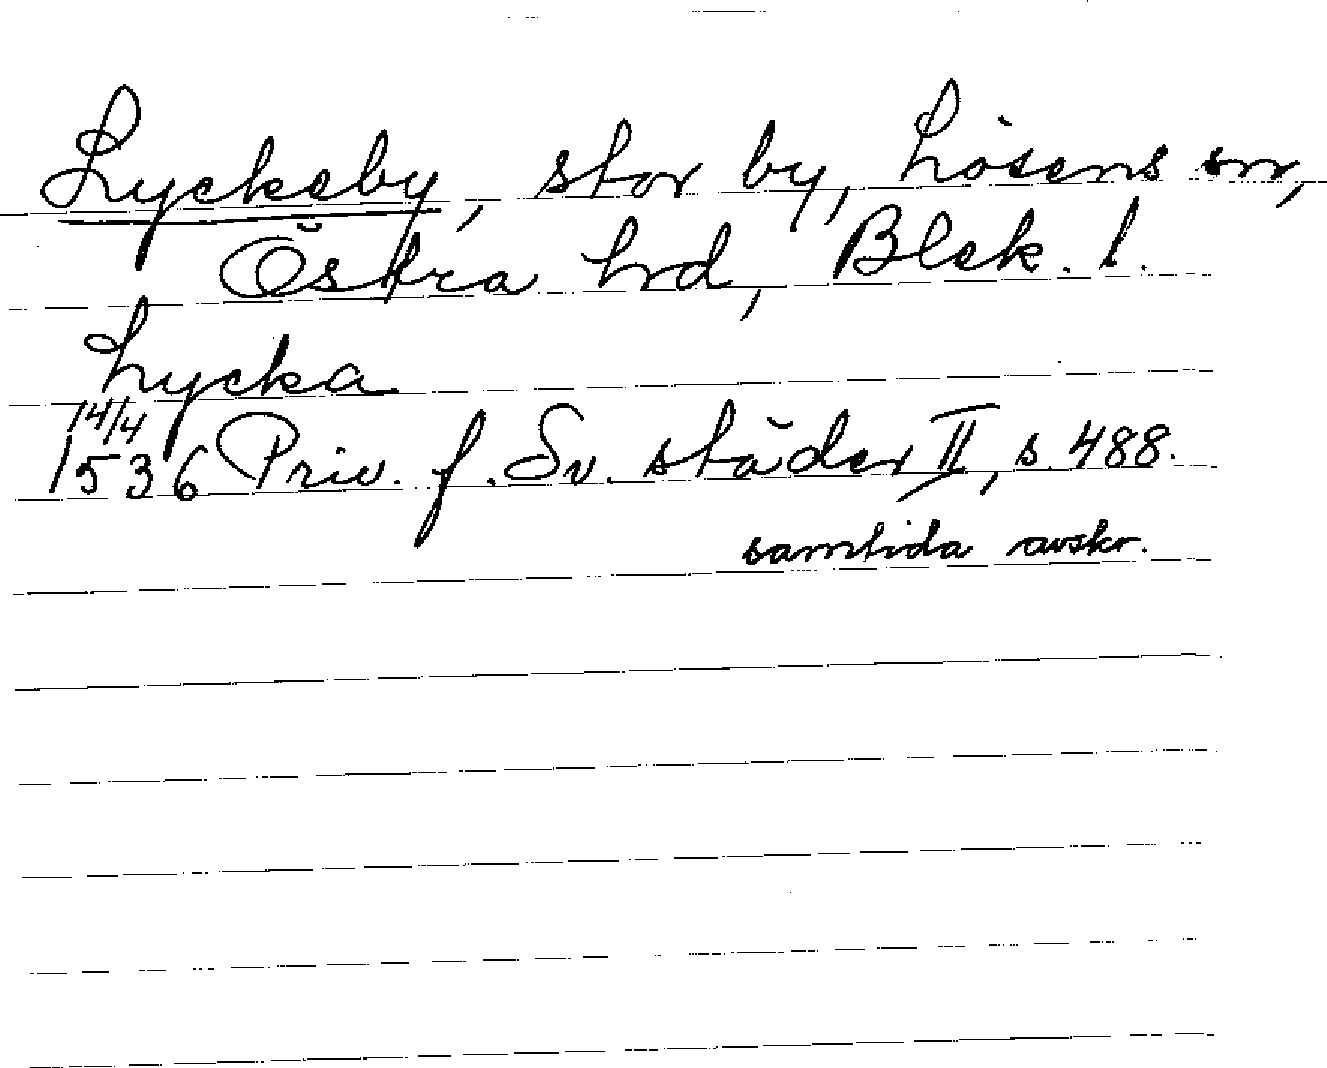 Lyckeby, stor by, Lösens sn,
Östra hd, Blek. l.
Lycka
14/4
1536 Priv. f. Sv. städer II, s. 488.
samtida avskr.